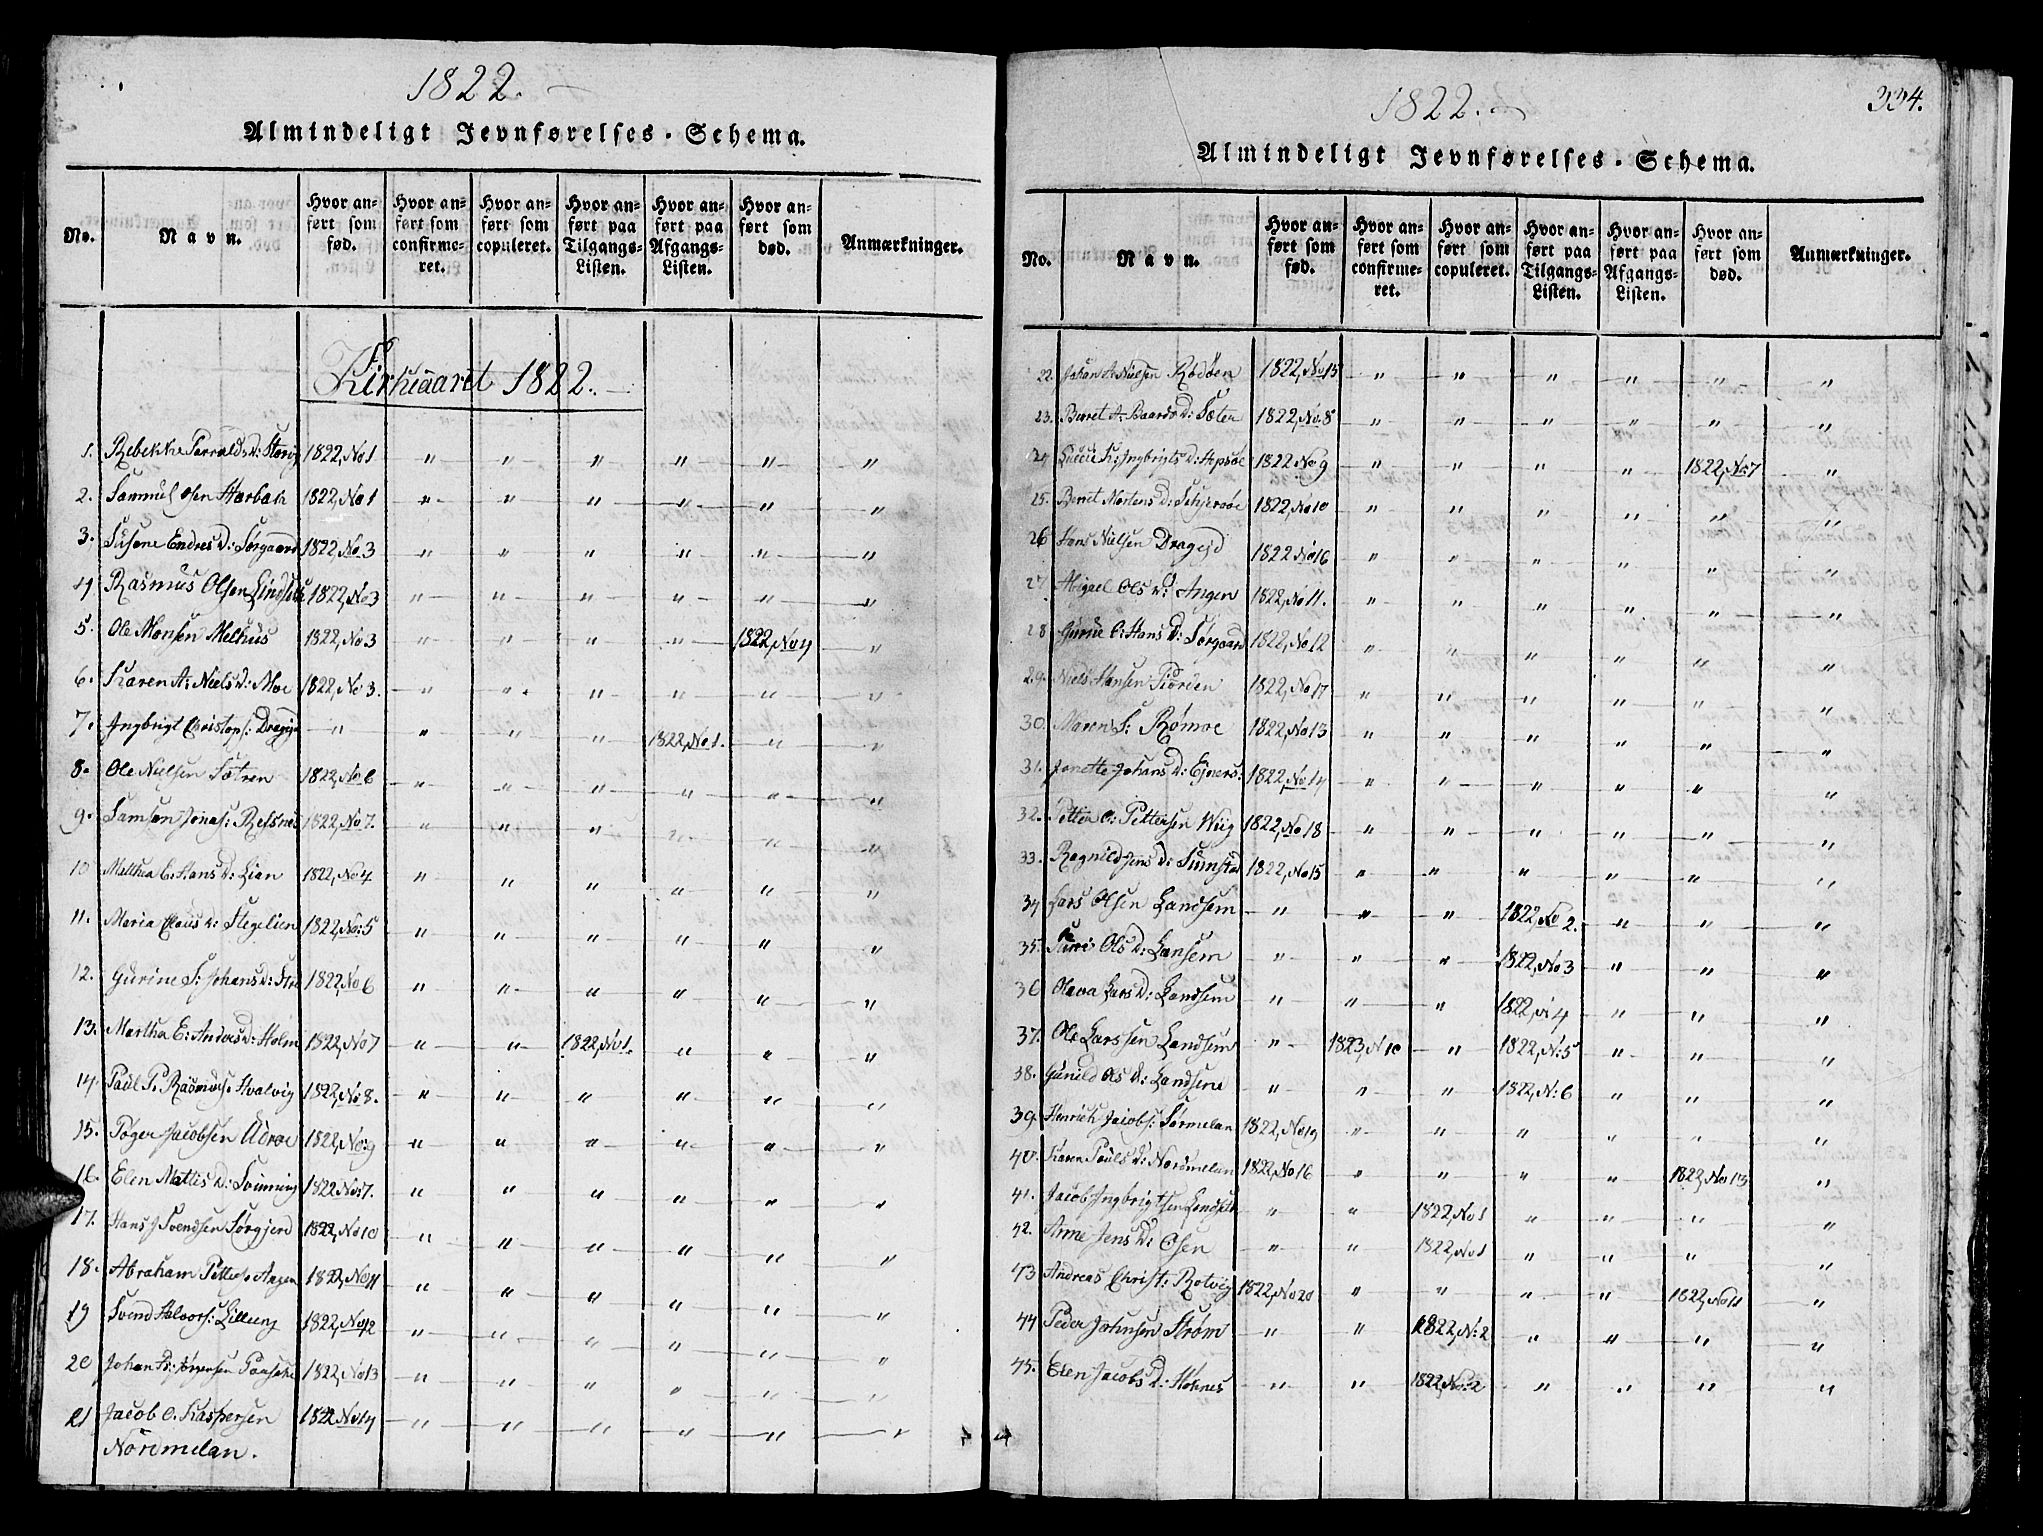 1822.
Almindeligt Jevnførelses-Schema.
No. Navn. Hvor anført som fød. Hvor anført som confirmeret. Hvor anført som copuleret. Hvor anført paa Tilgangs-Listen. Hvor anført paa Afgangs-Listen. Hvor anført som død. Anmærkninger.
Kirkeaaret 1822.
1. Rebekke 1822, No 1 " " " " " "
2. Samuel Osen Harbak 1822, No 1 " " " " " "
3. Susane Endres D: Sørgaard 1822, No 3 " " " " " "
4. Rasmus Olsen Lindseth 1822, No 3 " " " " " "
5. Ole Monsen Melhus 1822, No 3 " " " " 1822, No 4 "
6. Karen A: Niels D: Moe 1822, No 3. " " " " " "
7. Ingbrigt Christops: Drageid " " " " 1822, No 1. " "
8. Ole Nielsen Sætren 1822, No 6 " " " " " "
9. Samson Jonas: Refsnes 1822, No 7. " " " " " "
10 Matthea E. Hans D: Lian 1822, No 4 " " " " " "
11. Maria Claus D: Stegelien 1822, No: 5 " " " " " "
12. Gurine S: Johans D: 1822, No 6 " " " " " "
13. Martha E: Anders D: Holm 1822, No 7 " " 1822, No 1. " " "
14. Paul P. Rasmus: Hvalvig 1822, No 8. " " " " " "
15. Tøger Jacobsen 1822, No: 9 " " " " " "
16. Elen Mattis D: Svinning 1822 No: 7. " " " " " "
17. Hans J Svendsen Sørgjerd 1822, No 10 " " " " " "
18. Abraham Petters: Angen 1822, No 11 " " " " " "
19 Svend Halvors: 1822, No 12 " " " " " "
20 Johan 1822, No 13 " " " " " "
21 Jacob O. Kaspersen 1822 No 14 " " " " " "
Nordmelan.
1822.
334.
Almindeligt Jevnførelses-Schema.
No. Navn. Hvor anført som fød. Hvor anført som confirmeret. Hvor anført som copuleret. Hvor anført paa Tilgangs-Listen. Hvor anført paa Afgangs-Listen. Hvor anført som død. Anmærkninger.
22. Johan A: Nielsen Rødøen 1822, No 15 " " " " " "
23. Beret A: Baards D: Sæter 1822, No. 8 " " " " " "
24 K: Ingbrigts D: 1822 No 9 " " " " 1822, No: 7 "
25. Beret Mortens D: 1822, No 10 " " " " " "
26 Hans Nielsen Drageid 1822 No 16 " " " " " "
27. Abigael Ols D: Angen 1822, No 11. " " " " " "
28 Gurine O: Hans D: Sørgaard 1822, No 12 " " " " " "
29. Niels Hansen Fiorden 1822, No 17 " " " " " "
30. Maren S: Rømoe 1822, No 13 " " " " " "
31. Jonette Johans D: 1822, No 14 " " " " " "
32. Petter O: Pettersen Wiig 1822, No 18 " " " " " "
33. Ragnild Jens D: Sumstad 1822, No 15 " " " " " "
34 Lars Olsen Landsem " " " 1822, No 2. " " "
35. Ols D: Lansem " " " 1822, No 3 " " "
36 Olava Lars D: Landsem " " " 1822, N 4 " " "
37. Ole Larssen Landsem " 1823, N 10 " 1822, N: 5 " " "
38. Gunild Ols D: Landsem " " " 1822, N: 6 " " "
39. Henrich Jacobs: Sørmelan 1822, No 19 " " " " " "
40. Karen Pouls D: Nordmelan 1822, No 16 " " " " 1822, No 13 "
41. Jacob Ingbrigtsen Lindseth " " 1822, No 1 " " " "
42. Anne Jens D: Osen " " 1822, No 1 " " " "
43 Andreas Christ: Rotvig 1822, No 20 " " " " 1822, No 11 "
44 Peder Johnsen Strøm " " 1822, N: 2 " " " "
45. Elen Jacobs D: Hofnes " " 1822, No: 2 " " " "